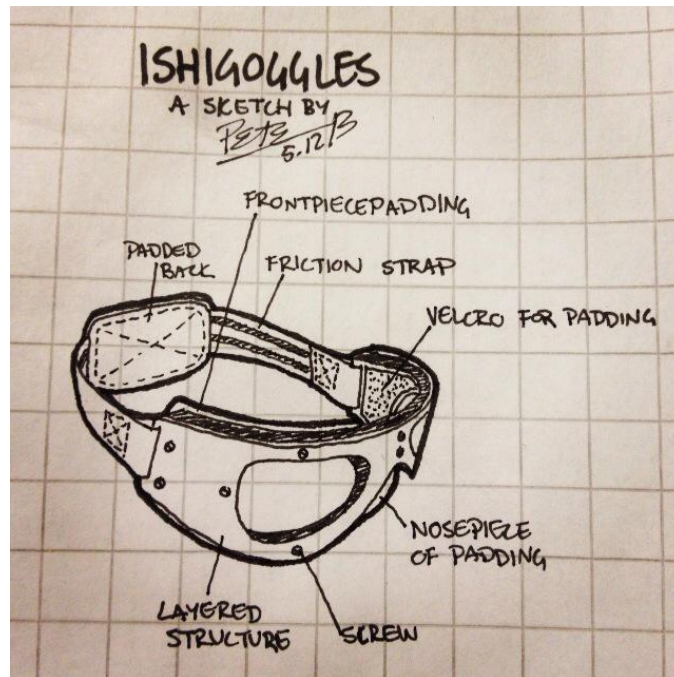 ISHIGOGGLES
A SKETCH BY
PETE
5.12/13
FRONTPIECEPADDING
PADDED
BACK
FRICTION STRAP
VELCRO FOR PADDING
NOSEPIECE
OF PADDING
LAYERED
STRUCTURE
SCREW